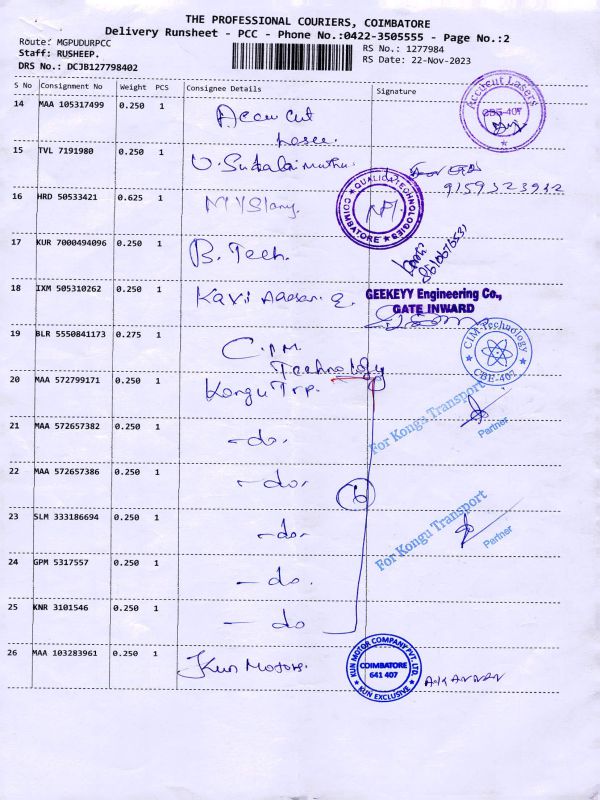 THE PROFESSIONAL COURIERS, COIMBATORE
Delivery Runsheet - PCC - Phone No.:0422-3505555 - Page No.:2
Route: MGPUDURPCC
Staff: RUSHEEP.
DRS No.: DCJB127798402
RS No.: 1277984
RS Date: 22-Nov-2023
S No Consignment No Weight PCS Consignee Details Signature
14 MAA 105317499 0.250 1 Accu Cut
Laser.
Accucut Lasers
CBE-407
15 TVL 7191980 0.250 1
9159323912
16 HRD 50533421 0.625 1
QUALIDA TECHNOLOGIES
COIMBATORE
17 KUR 7000494096 0.250 1 B. Tech.
18 IXM 505310262 0.250 1 Kavi
GEEKEYY Engineering Co.,
GATE INWARD
19 BLR 5550841173 0.275 1 C.I.M.
Technology
CIM Technology
CBE-407
20 MAA 572799171 0.250 1 Kongu Trp.
For Kongu Transport
Partner
21 MAA 572657382 0.250 1 -do.
22 MAA 572657386 0.250 1 -do.
6
23 SLM 333186694 0.250 1 -do-
For Kongu Transport
Partner
24 GPM 5317557 0.250 1 -do.
25 KNR 3101546 0.250 1 -do
26 MAA 103283961 0.250 1 Kun Motors.
KUN MOTOR COMPANY PVT. LTD.
COIMBATORE
641 407
KUN EXCLUSIVE